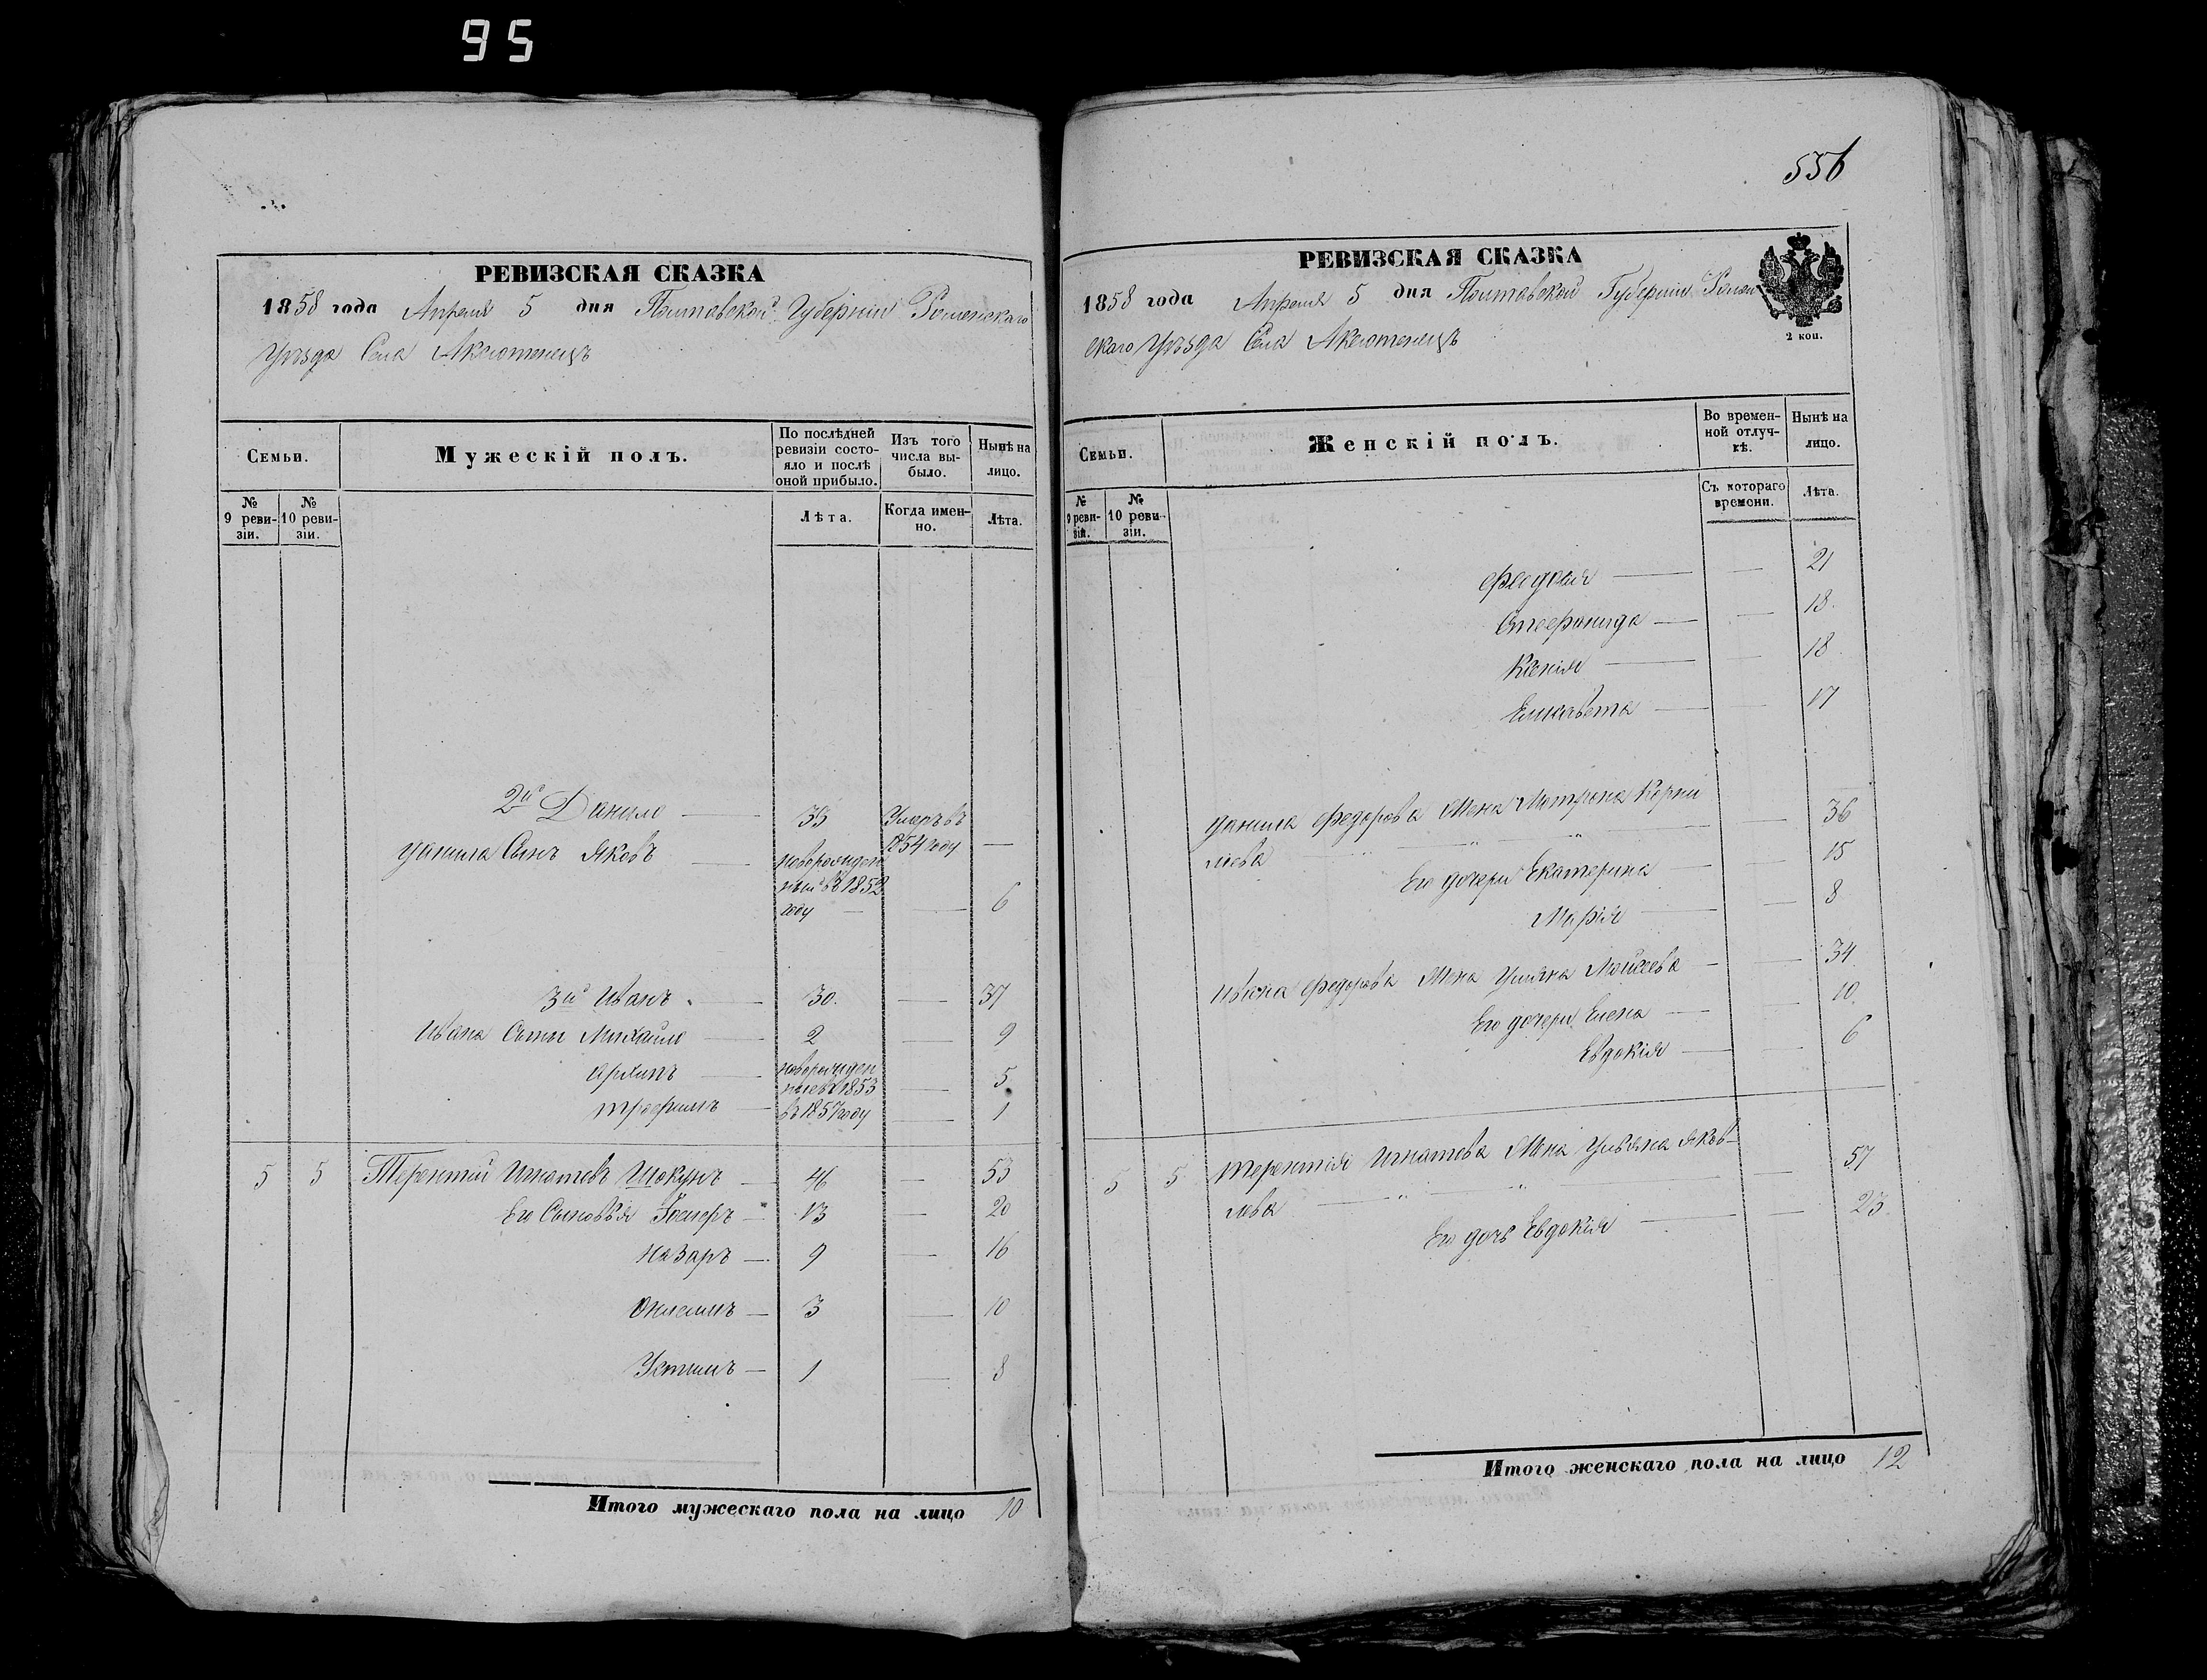 95
РЕВИЗСКАЯ СКАЗКА
1858 года Апреля 5 дня Полтавской Губерніи Роменскаго
Уѣзда Села Аксютенецъ
Семьи.
Мужескій полъ.
По послѣдней ревизіи состояло и послѣ оной прибыло.
Изъ того числа выбыло.
Нынѣ на лицо.
№ 9 ревизіи.
№ 10 ревизіи.
Лѣта.
Когда именно.
Лѣта.
2й Данило — 35 Умеръ въ 1854 году —
Данила Сынъ Яковъ — новорожденный въ 1852 году — — 6
3й Иванъ — 30. — 37
Ивана Сыны Михайло — 2 — 9
Архипъ — новорожденные въ 1853 — 5
Трофимъ — въ 1857 году — 1
5 5 Терентій Игнатовъ Шокунъ — 46 — 53
Его Сыновья — 13 — 20
Назаръ — 9 — 16
Онисимъ — 3 — 10
Устимъ — 1 — 8
Итого мужескаго пола на лицо 10
556
РЕВИЗСКАЯ СКАЗКА
1858 года Апреля 5 дня Полтавской Губерніи Ромен
скаго Уѣзда Села Аксютенецъ
2 коп.
Семьи.
Женскій полъ.
Во временной отлучкѣ.
Нынѣ на лицо.
№ 9 ревизіи.
№ 10 ревизіи.
Съ котораго времени.
Лѣта.
Феодосія — — 21
Стефанида — — 18.
Ксенія — — 18.
Елисавета — — 17
Данила Федорова Жена Мотрона Корни
лиева — " — " — — 36
Его дочери Екатерина — — 15
Марія — — 8
Ивана Федорова Жена Ульяна Мойсеева — — 34
Его дочери Елена — — 10.
Евдокія — — 6
5 5 Терентія Игнатова Жена Ульяна Яков-
лева — " — " — — 57
Его дочь Евдокія — — 23.
Итого женскаго пола на лицо 12